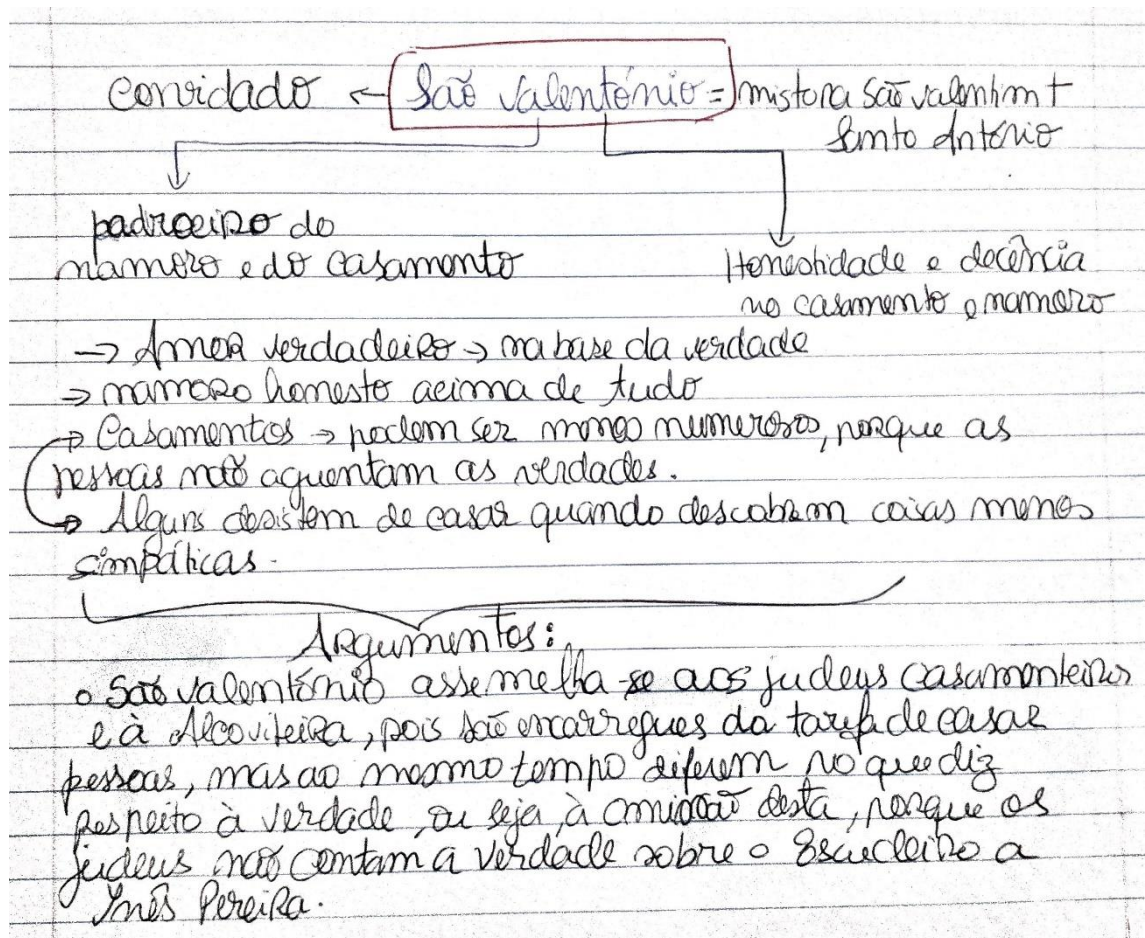 convidado ← São Valentónio = mistura São Valentim +
Santo António
padroeiro do
namoro e do casamento
Honestidade e decência
no casamento e namoro
→ Amor verdadeiro → na base da verdade
→ namoro honesto acima de tudo
→ Casamentos → podem ser menos numerosos, porque as
pessoas não aguentam as verdades.
→ Alguns desistem de casar quando descobrem coisas menos
simpáticas.
Argumentos:
• São Valentónio assemelha-se aos judeus casamenteiros
e à Alcoviteira, pois são encarregues da tarefa de casar
pessoas, mas ao mesmo tempo diferem no que diz
respeito à verdade, ou seja, à omissão desta, porque os
judeus não contam a verdade sobre o Escudeiro a
Inês Pereira.